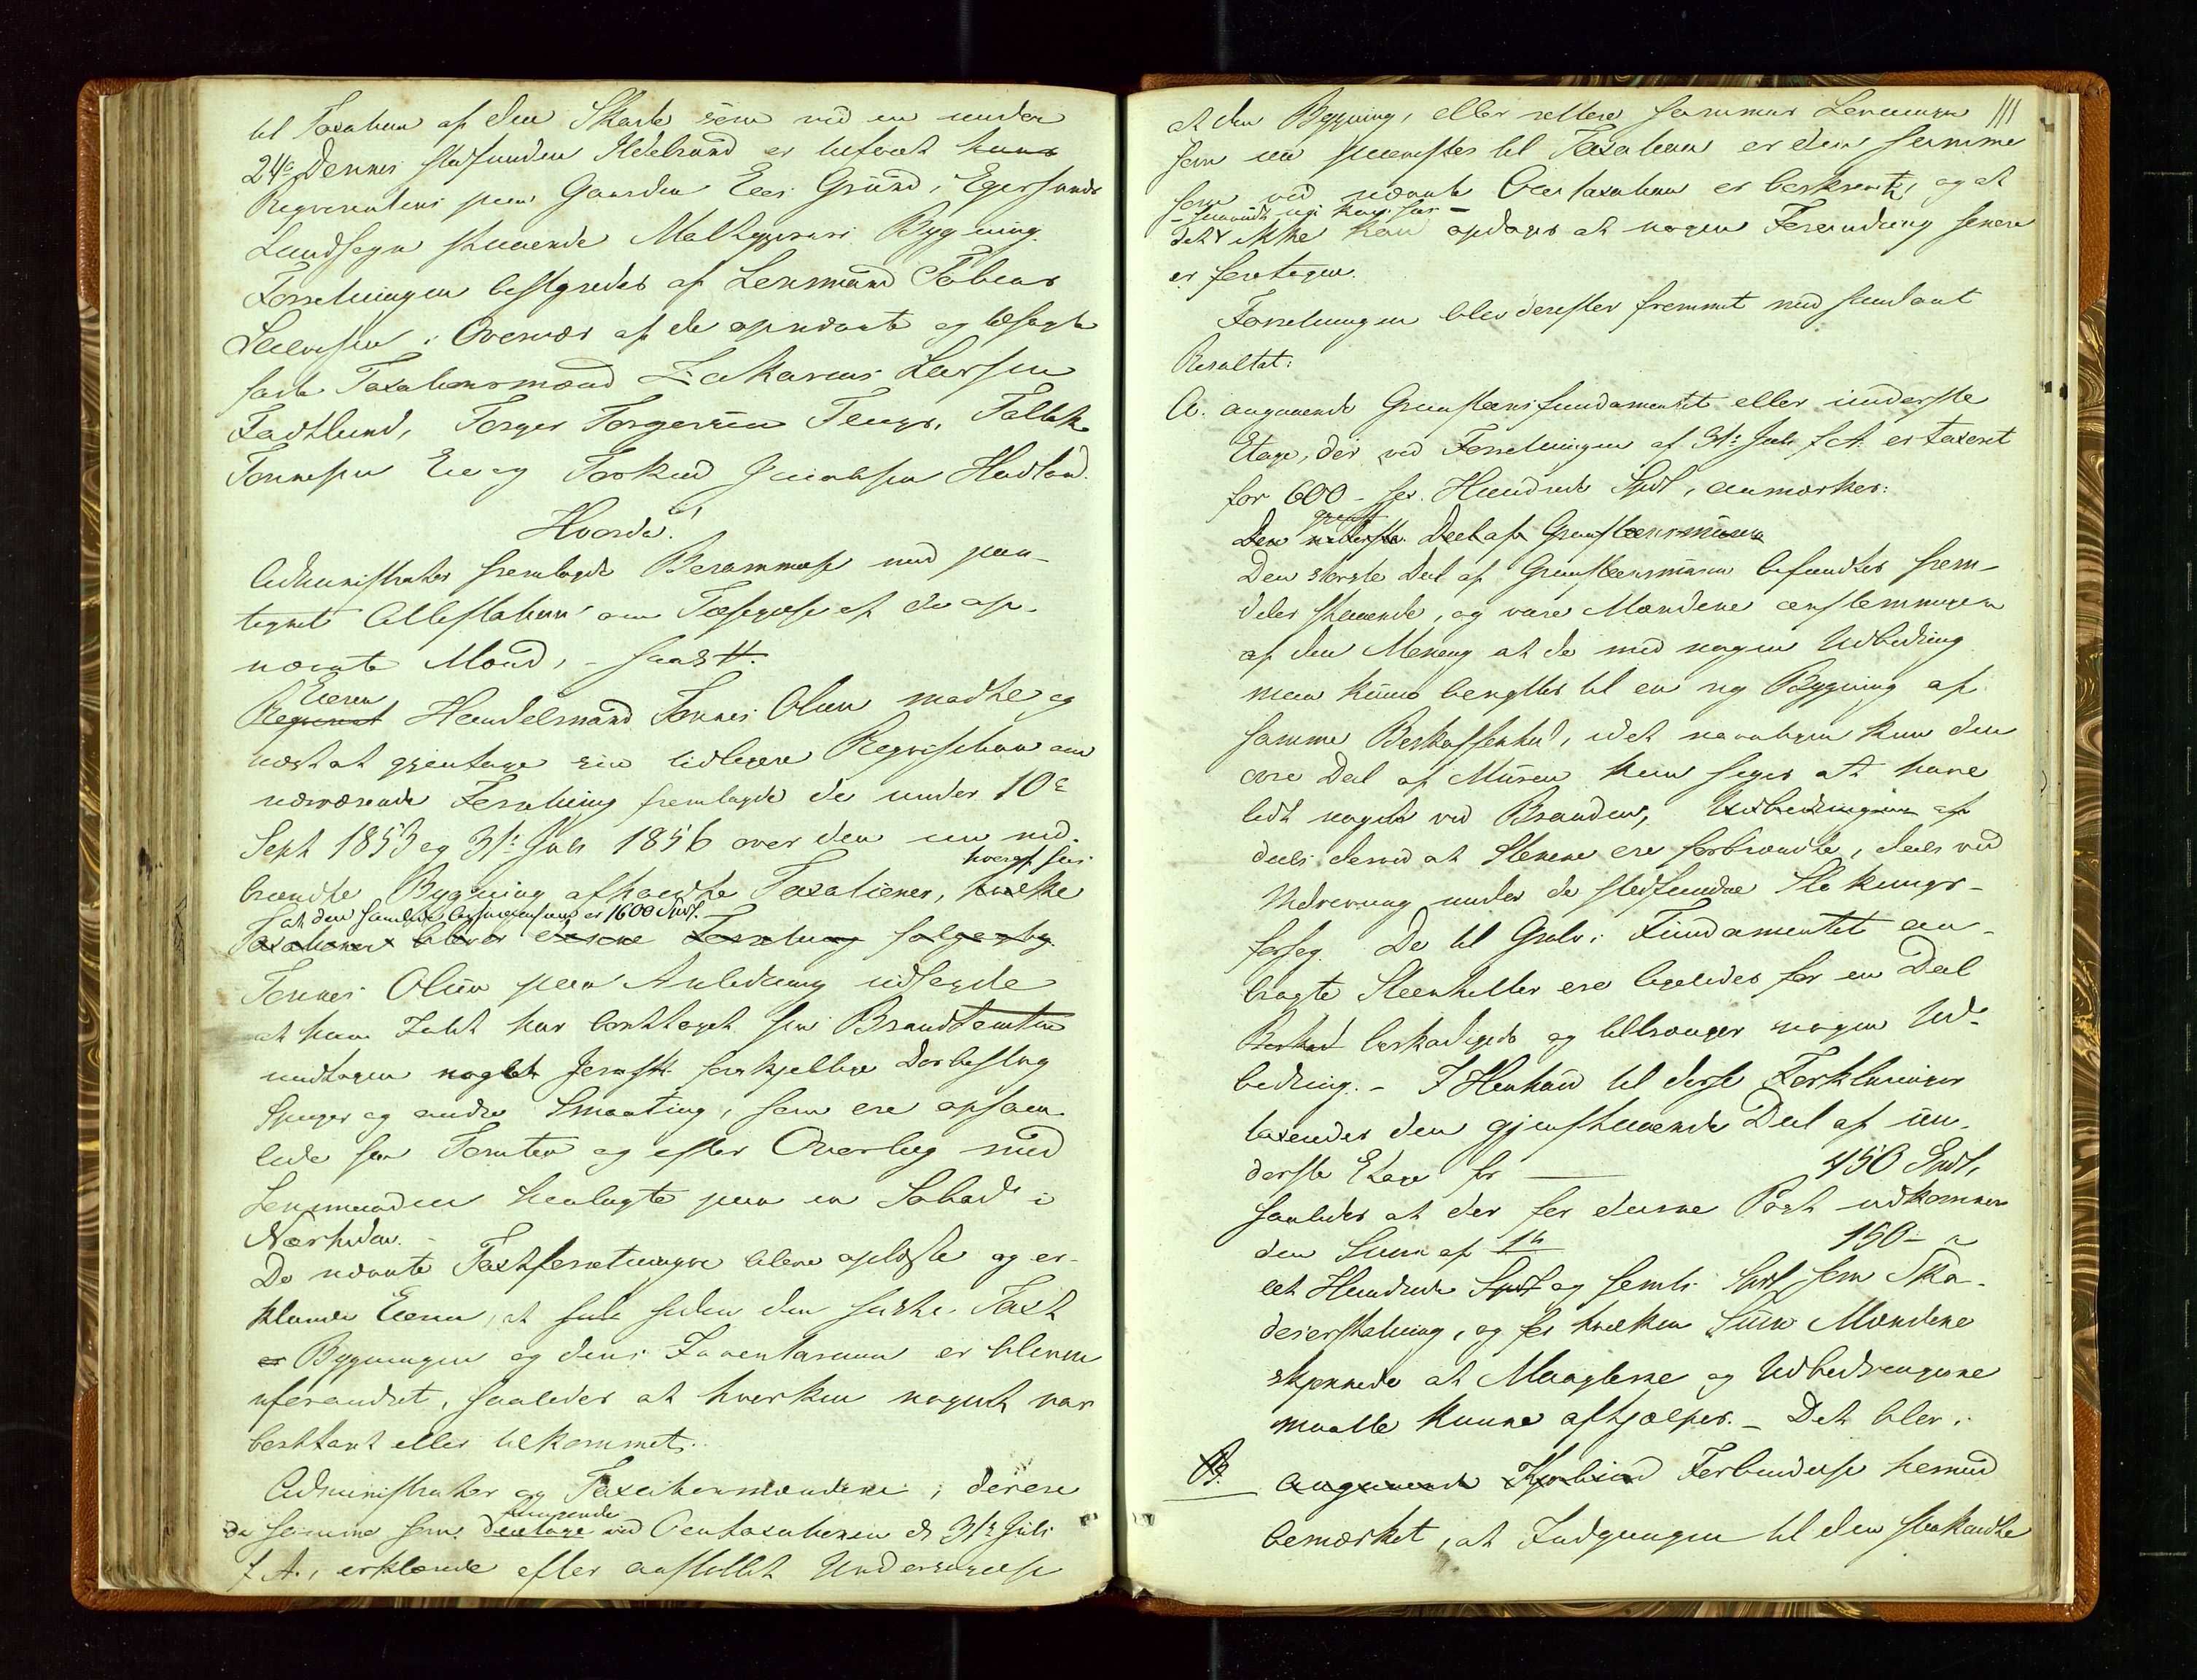 til Taxation af den Skade som ved en under
24de Dennes stedfunden Ildebrand er tilføiet hans
Reqvirentens paa Gaarden Eeg Grund i Egersunds
Landsogn staaende Meltgjøreri Bygning.
Forretningen bestyredes af Lensmand Tobias
i Overvær af de opnævnte og edsagte
faste Taxationsmænd Zakarias Larsen
Fadtland, Torger Torgersen Tengs, Tollak
Tønnesen Eie og Torkild Jacobsen Hadland.
Hvorda!
Administrator fremlagde Berammelse med paa-
tegnet Attestation om Tilsigelse af de op-
nævnte Mænd, - saa #.
Eieren
Reqvirent Handelsmand Tønnes Olsen mødte og
næst at gjentage sin tidligere Reqvisition om
nærværende Forretning fremlagde de under 10de
Sept 1853 og 31te Juli 1856 over den nu ned-
hvoraf sees
brændte Bygning afholdte Taxationer, hvilke
at den samlede er 1600 Spd.
Taxationer bliver denne Forretning følgagtig
Tønnes Olsen paa Anledning udsagde
at han Intet har borttaget fra Brandtomten
undtagen noglet Jern forskjellige Dørbeslag
Spiger og andre Smaating, som ere opsam-
lede fra Tomten og efter Overlæg med
Lensmanden henlagte paa en Søbod i
Nærheden. -
De nævnte Taxtforretninger bleve oplæste og er-
klærede Eieren, at siden den sidste Taxt
er Bygningen og dens Inventarium er bleven
uforandret, saaledes at hverken noget var
borttaget eller tilkommet.
Administrator og Taxationsmændene, der ere
fungerende
de samme som deeltoge ved Omtaxationen d. 31te Juli
f. A., erklærede efter anstillet Undersøgelse
111
at den Bygning, eller rettere sammes Levninger
som nu fremstes til Taxation er den samme
som ved nævnte Omtaxation er beskrevet, og at
det ikke kan opdages at nogen Forandring senere
er foretagen.
Forretningen blev derefter fremmet med saadant
Resultat:
A. angaaende Graasteensfundamentet eller underste
Etage, der ved Forretningen af 31te Juli f. A. er taxeret
for 600 - sex Hundrede Spdl, anmærkes:
Den nederste Deel af Graasteensmuren
Den største Deel af Graasteensmuren befandtes frem-
deles staaende, og vare Mændene eenstemmigen
af den Mening at de med nogen Udbedring
maa kunne benyttes til en ny Bygning af
samme Beskaffenhed, idet navnligen kun den
øvre Deel af Muren kan siges at have
lidt noget ved Branden, Udbedringen af
deels derved at Stenene ere forbrændte, deels ved
Nedrivning under de stedfundne Sluknings-
forsøg. De til Gulv i Fundamentet an-
bragte Steenheller ere ligeledes for en Deel
beskadigede og tiltrænger nogen Ud-
bedring. - I Henhold til disse Forklaringer
taxeredes den gjenstaaende Deel af un-
derste Etage for — 450 Spdl,
saaledes at der for denne Post udkommer
den Sum af 150 -
eet Hundrede Spdl og femti Spdl som Ska-
deserstatning, og for hvilken Sum Mændene
skjønnede at Manglerne og Udbedringerne
maatte kunne afhjælpes. - Det blev i
B. angaaende Forbindelse hermed
bemærket, at Indgangen til den